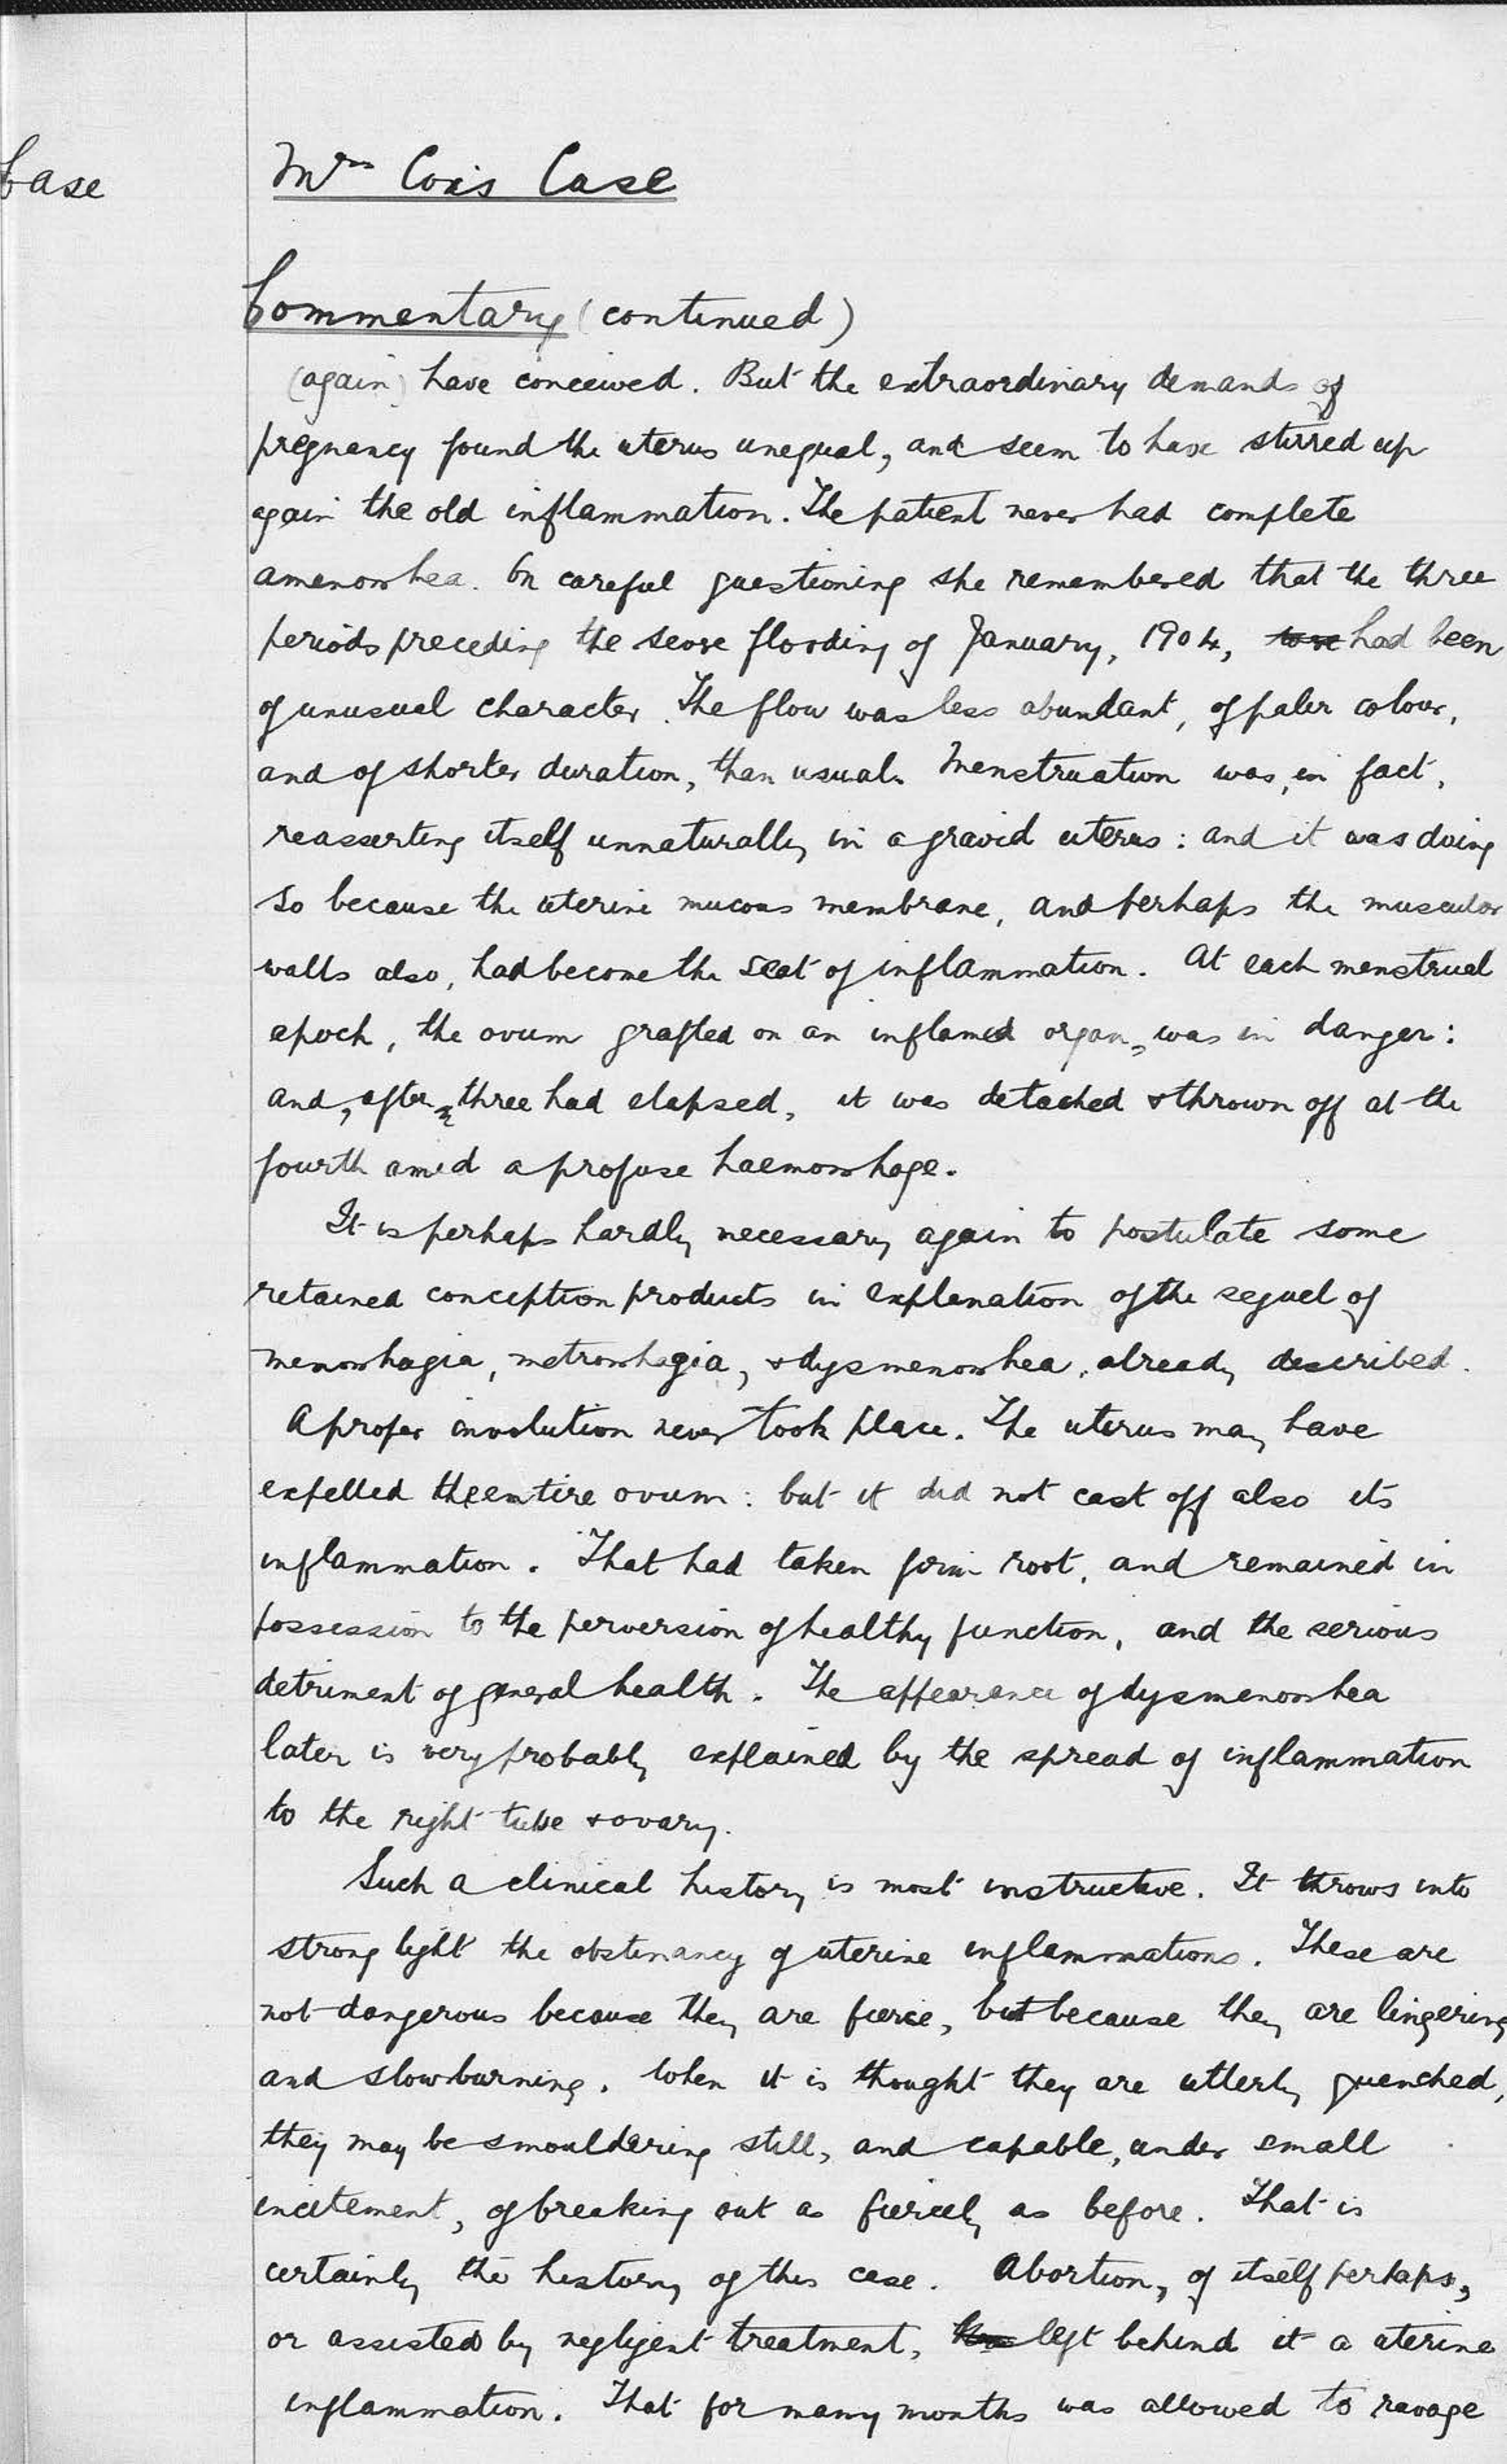 Case
Mrs Cox's Case
Commentary (continued)
(again) have conceived. But the extraordinary demands of
pregnancy found the uterus unequal, and seem to have stirred up
again the old inflammation. The patient never had complete
amenorrhea. On careful questioning she remembered that the three
periods preceding the severe flooding of January, 1904, had been
of unusual character. The flow was less abundant, of paler colour,
and of shorter duration, than usual. Menstruation was, in fact,
reasserting itself unnaturally in a gravid uterus: and it was doing
so because the uterine mucous membrane, and perhaps the muscular
walls also, had become the seat of inflammation. At each menstrual
epoch, the ovum grafted on an inflamed organ, was in danger:
and, after three had elapsed, it was detached & thrown off at the
fourth amid a profuse haemorrhage.
It is perhaps hardly necessary again to postulate some
retained conception products in explanation of the sequel of
menorrhagia, metrorrhagia, & dysmenorrhea, already described.
A proper involution never took place. The uterus may have
expelled the entire ovum: but it did not cast off also its
inflammation. That had taken firm root, and remained in
possession to the perversion of healthy function, and the serious
detriment of general health. The appearance of dysmenorrhea
later is very probably explained by the spread of inflammation
to the right tube & ovary.
Such a clinical history is most instructive. It throws into
strong light the obstinancy of uterine inflammations. These are
not dangerous because they are fierce, but because they are lingering
and slowburning. When it is thought they are utterly quenched,
they may be smouldering still, and capable, under small
incitement, of breaking out as fiercely as before. That is
certainly the history of this case. Abortion, of itself perhaps,
or assisted by negligent treatment, left behind it a uterine
inflammation. That for many months was allowed to ravage